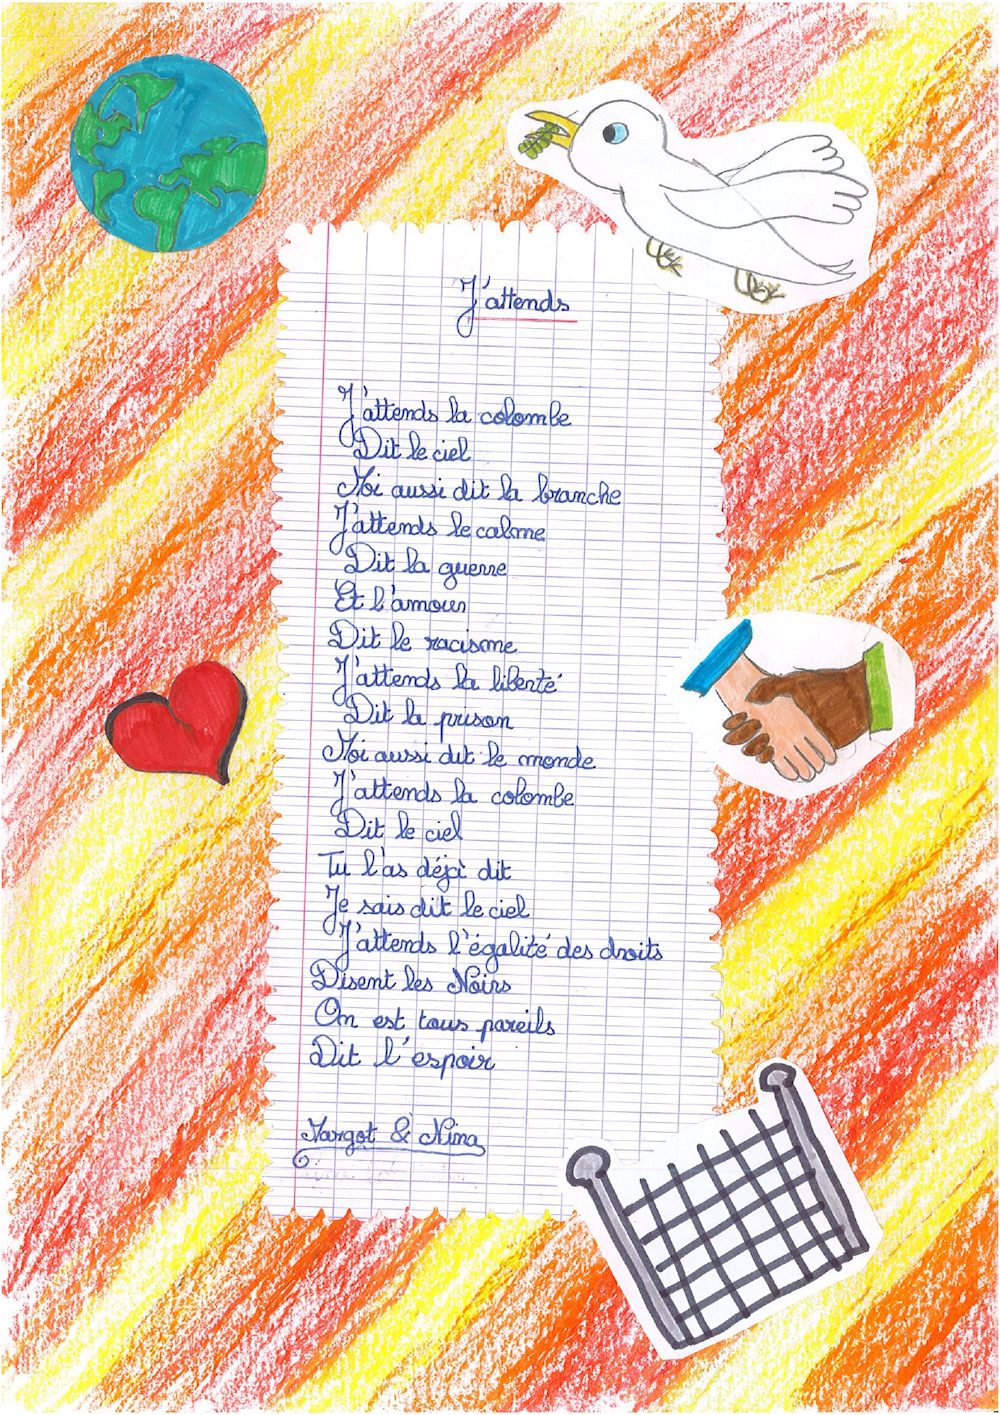 J'attends
J'attends la colombe
Dit le ciel
Moi aussi dit la branche
J'attends le calme
Dit la guerre
Et l'amour
Dit le racisme
J'attends la liberté
Dit la prison
Moi aussi dit le monde
J'attends la colombe
Dit le ciel
Tu l'as déjà dit
Je sais dit le ciel
J'attends l'égalité des droits
Disent les Noirs
On est tous pareils
Dit l'espoir
Margot & Nina